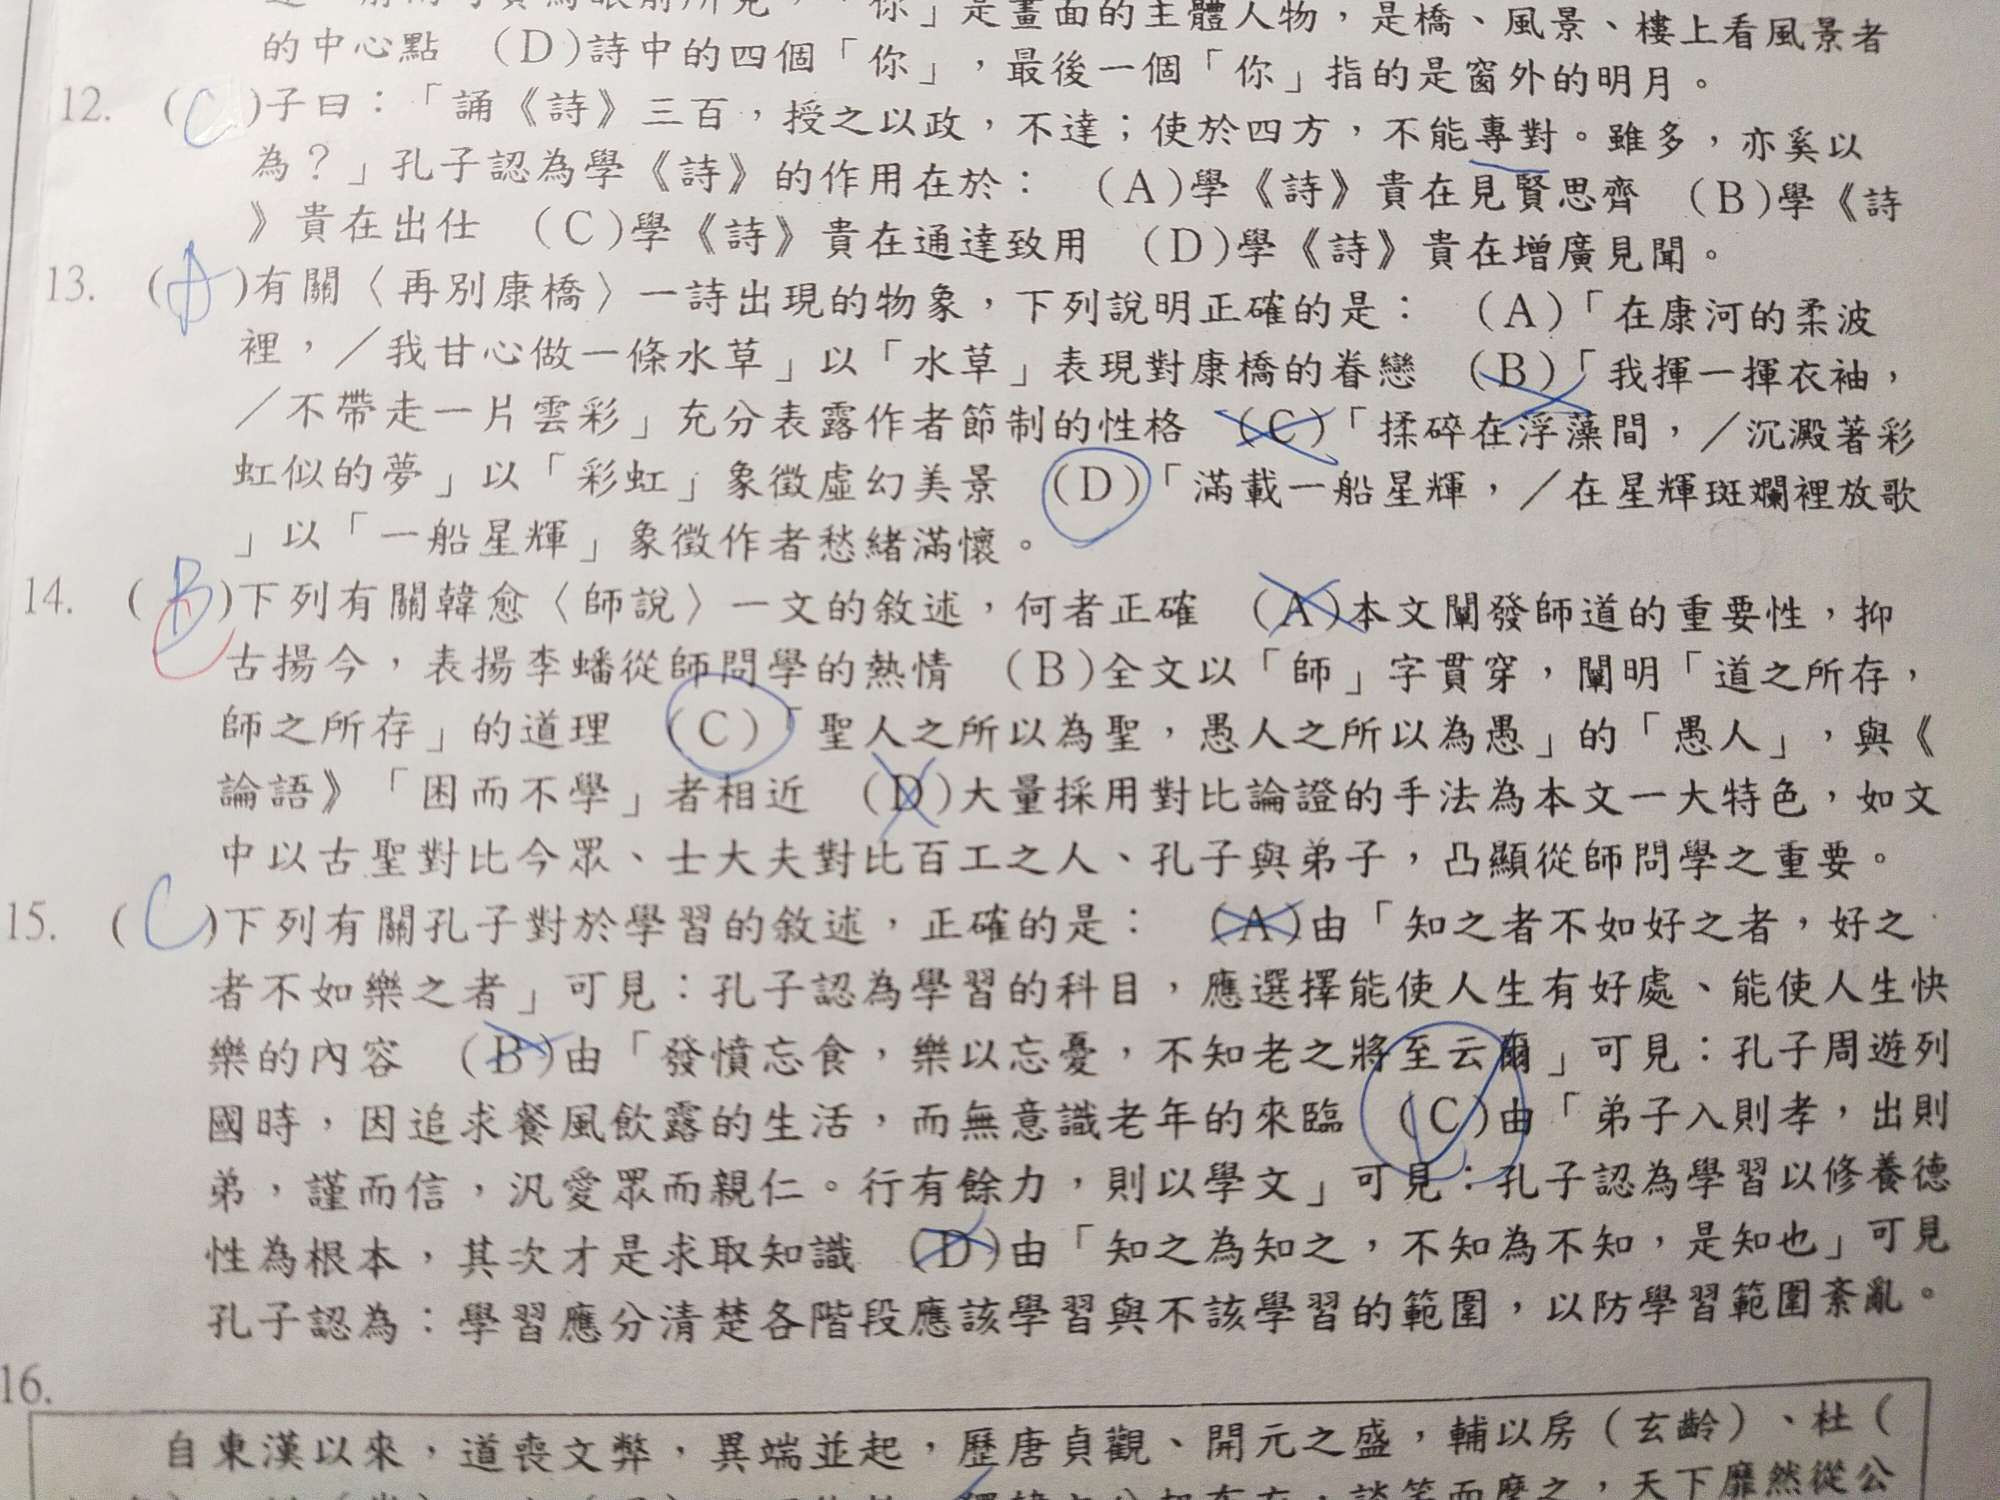 你」是畫面的主體人物，是橋、風景、樓上看風景者
的中心點　(D)詩中的四個「你」，最後一個「你」指的是窗外的明月。
12. ( C )子曰：「誦《詩》三百，授之以政，不達；使於四方，不能專對。雖多，亦奚以
為？」孔子認為學《詩》的作用在於：　(A)學《詩》貴在見賢思齊　(B)學《詩
》貴在出仕　(C)學《詩》貴在通達致用　(D)學《詩》貴在增廣見聞。
13. ( A )有關〈再別康橋〉一詩出現的物象，下列說明正確的是：　(A)「在康河的柔波
裡，／我甘心做一條水草」以「水草」表現對康橋的眷戀　(B)「我揮一揮衣袖，
／不帶走一片雲彩」充分表露作者節制的性格　(C)「揉碎在浮藻間，／沉澱著彩
虹似的夢」以「彩虹」象徵虛幻美景　(D)「滿載一船星輝，／在星輝斑斕裡放歌
」以「一船星輝」象徵作者愁緒滿懷。
14. ( B )下列有關韓愈〈師說〉一文的敘述，何者正確　(A)本文闡發師道的重要性，抑
古揚今，表揚李蟠從師問學的熱情　(B)全文以「師」字貫穿，闡明「道之所存，
師之所存」的道理　(C)「聖人之所以為聖，愚人之所以為愚」的「愚人」，與《
論語》「困而不學」者相近　(D)大量採用對比論證的手法為本文一大特色，如文
中以古聖對比今眾、士大夫對比百工之人、孔子與弟子，凸顯從師問學之重要。
15. ( C )下列有關孔子對於學習的敘述，正確的是：　(A)由「知之者不如好之者，好之
者不如樂之者」可見：孔子認為學習的科目，應選擇能使人生有好處、能使人生快
樂的內容　(B)由「發憤忘食，樂以忘憂，不知老之將至云爾」可見：孔子周遊列
國時，因追求餐風飲露的生活，而無意識老年的來臨　(C)由「弟子入則孝，出則
弟，謹而信，汎愛眾而親仁。行有餘力，則以學文」可見：孔子認為學習以修養德
性為根本，其次才是求取知識　(D)由「知之為知之，不知為不知，是知也」可見
孔子認為：學習應分清楚各階段應該學習與不該學習的範圍，以防學習範圍紊亂。
16.
自東漢以來，道喪文弊，異端並起，歷唐貞觀、開元之盛，輔以房（玄齡）、杜（
談笑而麾之，天下靡然從公